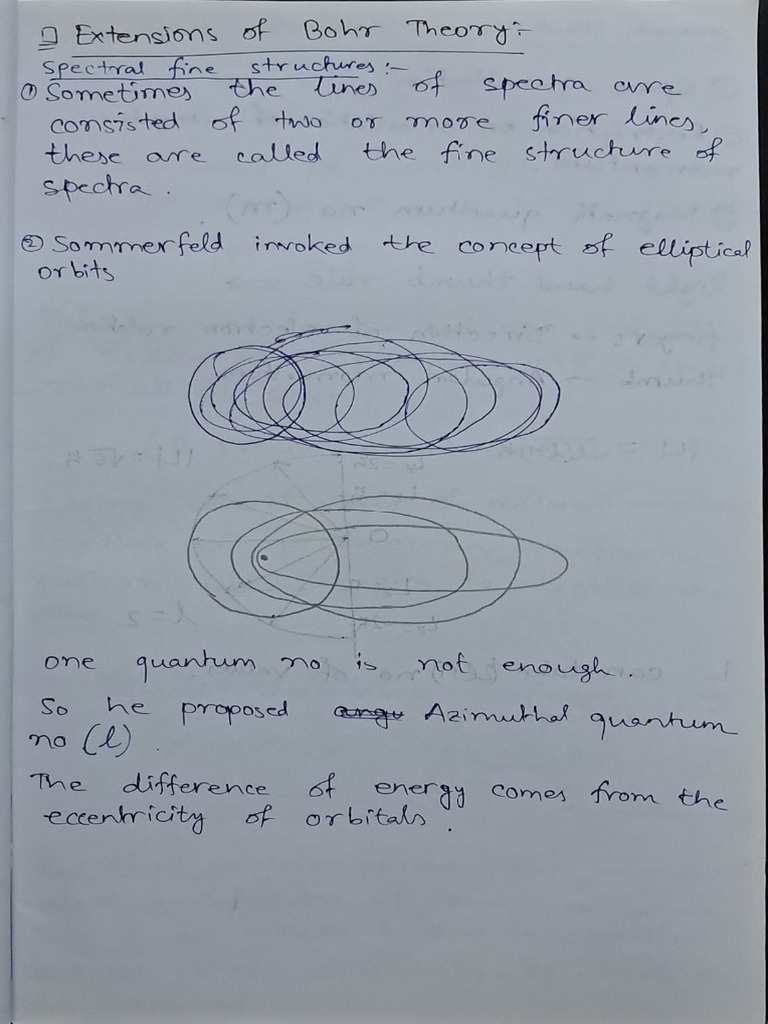 Extensions of Bohr Theory :-
Spectral fine structures :-
① Sometimes the lines of spectra are
consisted of two or more finer lines,
these are called the fine structure of
spectra .
② Sommerfeld invoked the concept of elliptical
orbits
one quantum no is not enough.
So he proposed angu Azimuthal quantum
no (l) .
The difference of energy comes from the
eccentricity of orbitals .